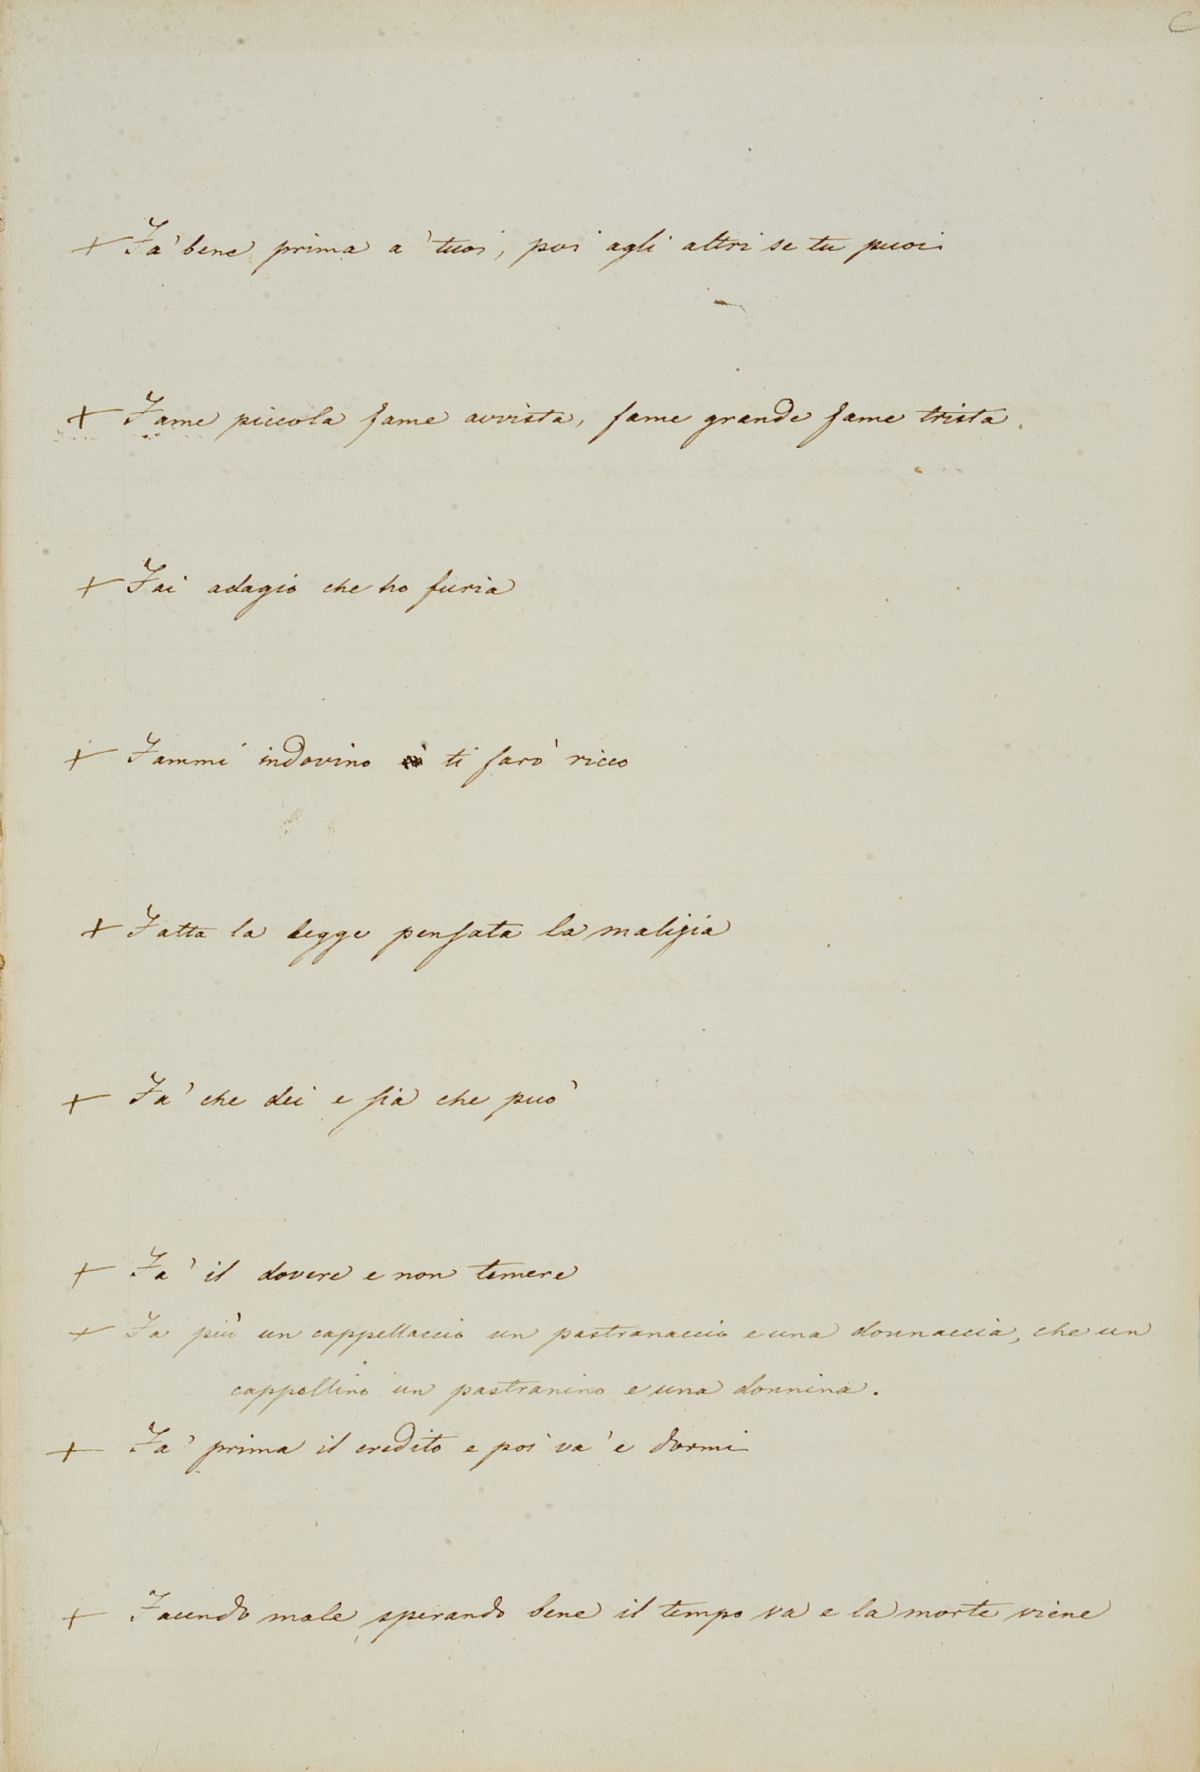 C
+ Fa' bene prima a' tuoi, poi agli altri se tu puoi
+ Fame piccola fame avvista, fame grande fame trista.
+ Fai adagio che ho furia
+ Fammi indovino ti farò ricco
+ Fatta la legge pensata la malizia
+ Fa' che dei e sia che può
+ Fa' il dovere e non temere
+ Fa più un cappellaccio un pastranaccio e una donnaccia, che un
cappellino un pastranino e una donnina.
+ Fa' prima il credito e poi va' e dormi
+ Facendo male, sperando bene il tempo va e la morte viene